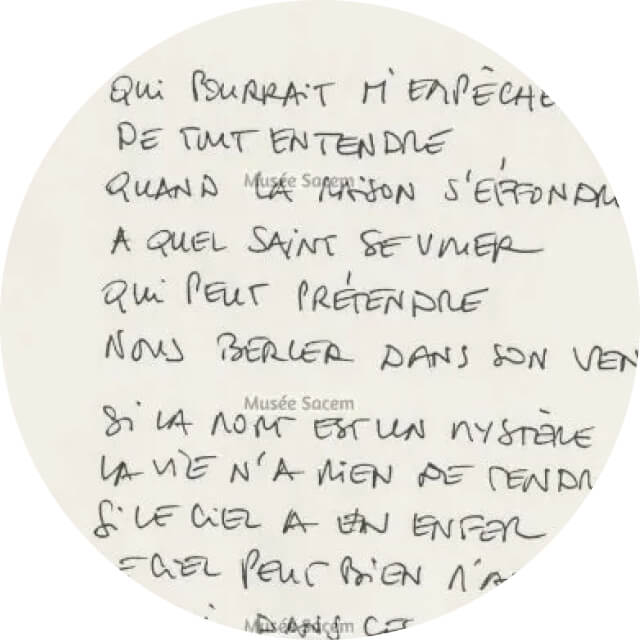 QUI POURRAIT M'EMPÊCHE
DE TOUT ENTENDRE
Musée Sacem
QUAND LA RAISON S'EFFONDR
A QUEL SAINT SE VOUER
QUI PEUT PRÉTENDRE
NOUS BERCER DANS SON VEN
Musée Sacem
SI LA MORT EST UN MYSTÈRE
LA VIE N'A RIEN DE TENDR
SI LE CIEL A UN ENFER
E CIEL PEUT BIEN M'A
DANS CE
Musée Sacem